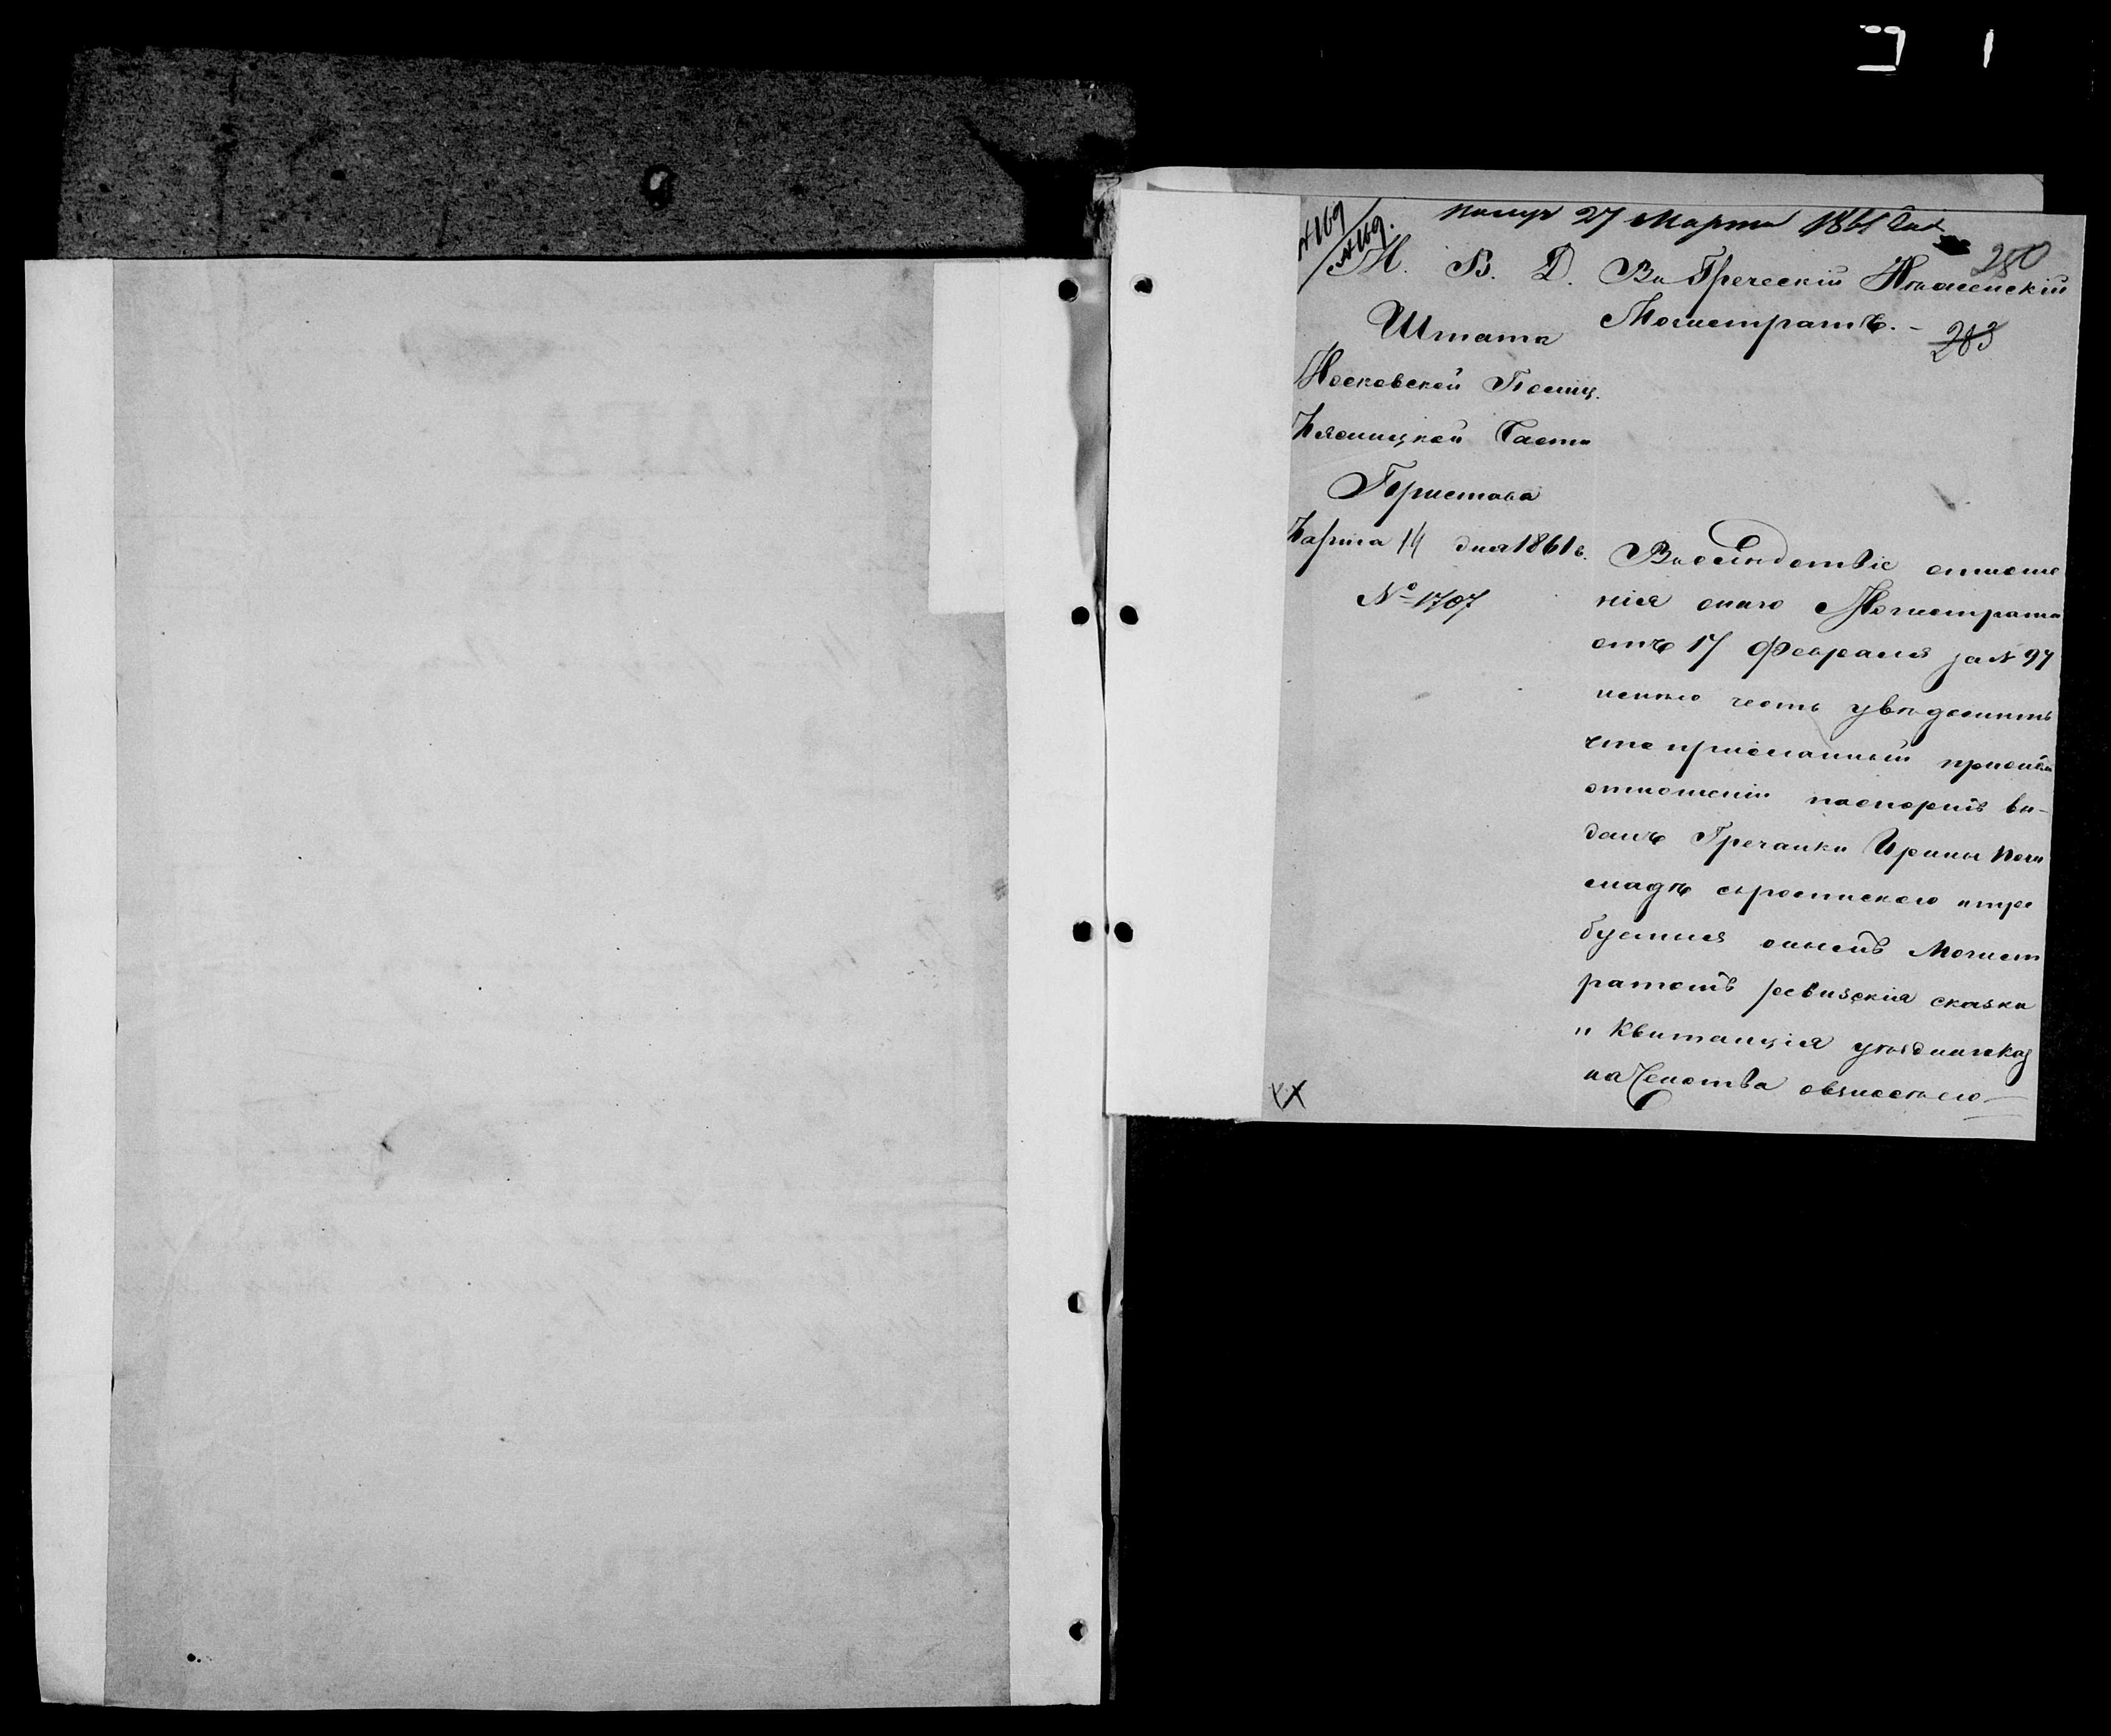 № 169
№ 169.
получ 27 Марта 1861 года
280
М. В. Д.
Штата
Московской Полиц.
Мясницкой Части
Пристава
Марта 14 дня 1861 г.
№ 1707
Въ Греческій Нѣженскій
Магистратъ. –
283
Въ слѣдствіе отноше
нія онаго Магистрата
отъ 17 Февраля за № 97
имѣю честь увѣдомить
что присланный при ономъ
отношеніи паспортъ вы-
данъ Гречанки Ирины
съ роспискою а тре
буемыя онымъ Магист
ратомъ ревизскія сказки
и Квитанція уѣзднаго Каз
начейства